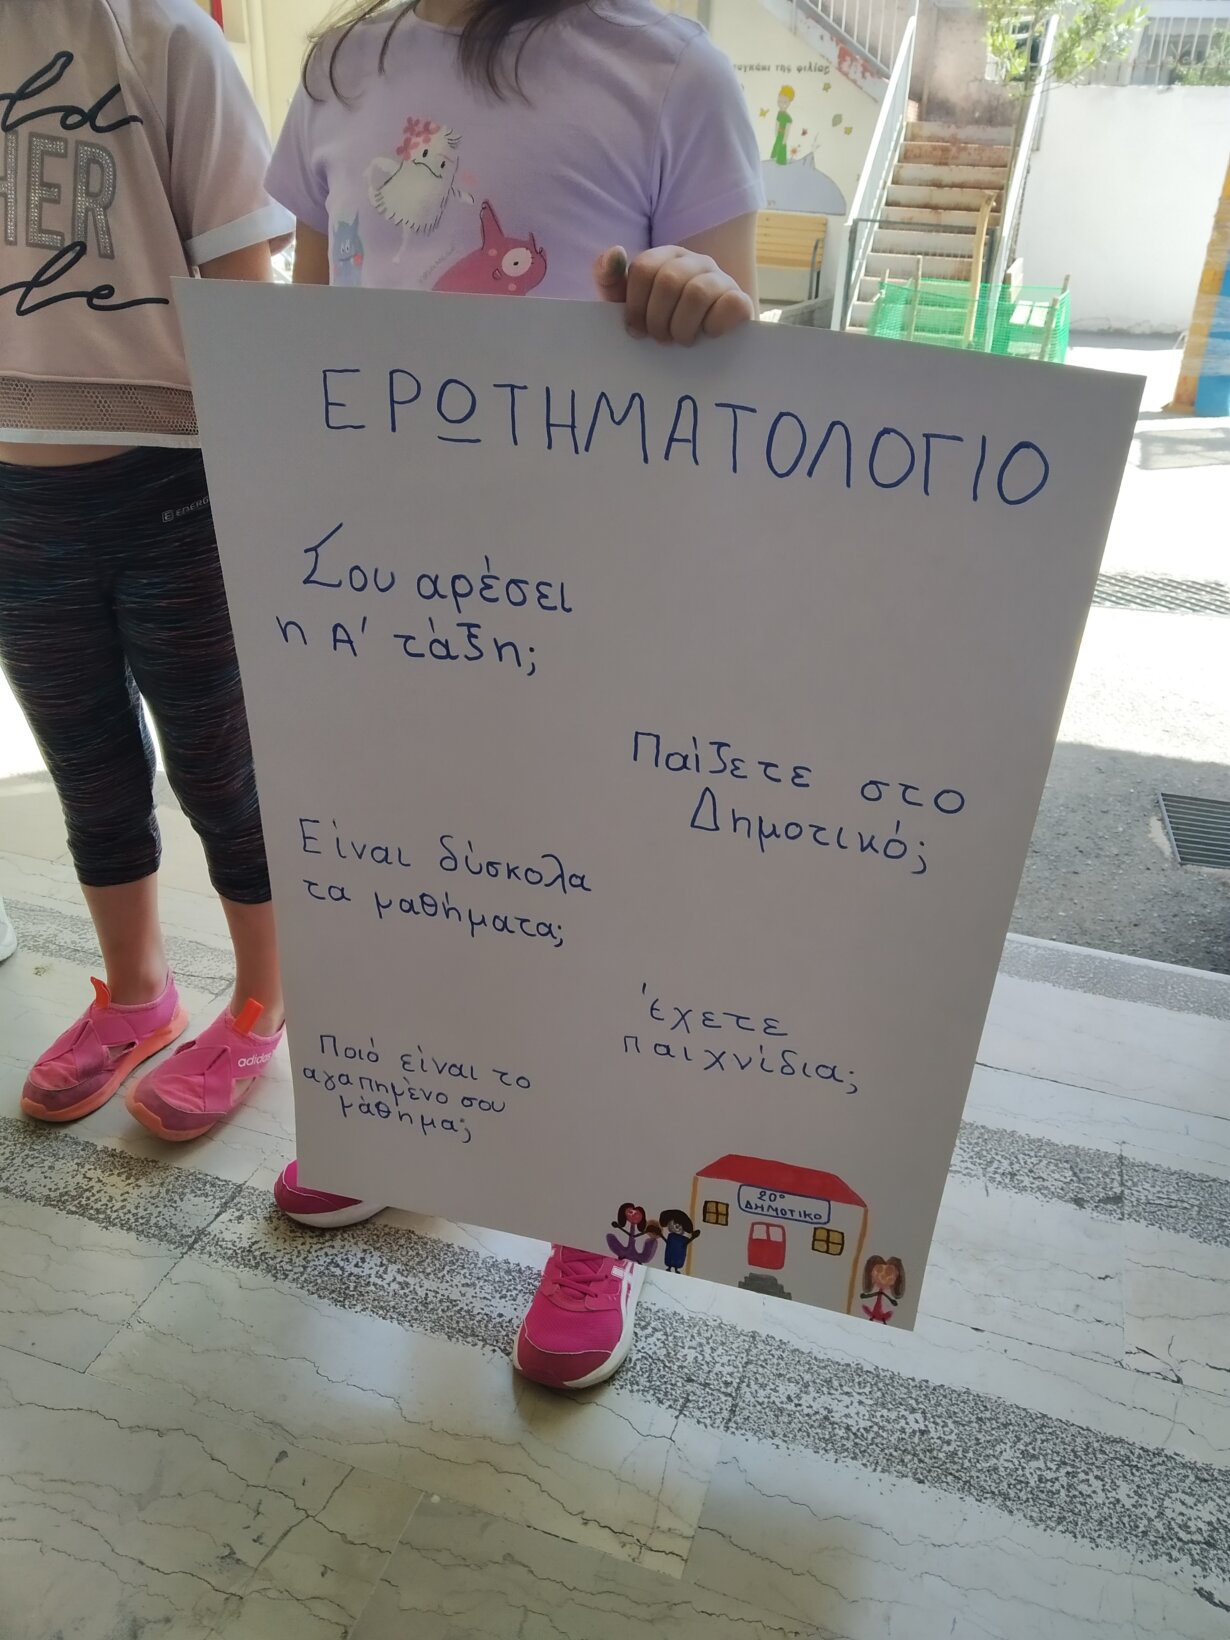 ld
HER
de
ταγκάκι της φιλίας
ENERG
ΕΡΩΤΗΜΑΤΟΛΟΓΙΟ
Σου αρέσει
η Α' τάξη;
Παίζετε στο
Δημοτικό;
Είναι δύσκολα
τα μαθήματα;
Έχετε
παιχνίδια;
Ποιό είναι το
αγαπημένο σου
μάθημα;
adidas
20°
ΔΗΜΟΤΙΚΟ